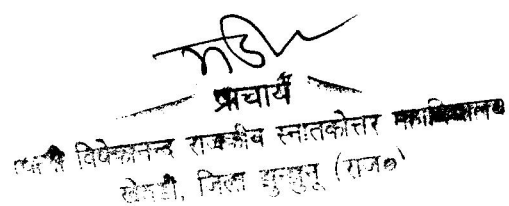 प्राचार्य
स्वामी विवेकानन्द राजकीय स्नातकोत्तर महाविद्यालय
खेतडी, जिला झुन्झुनू (राज०)